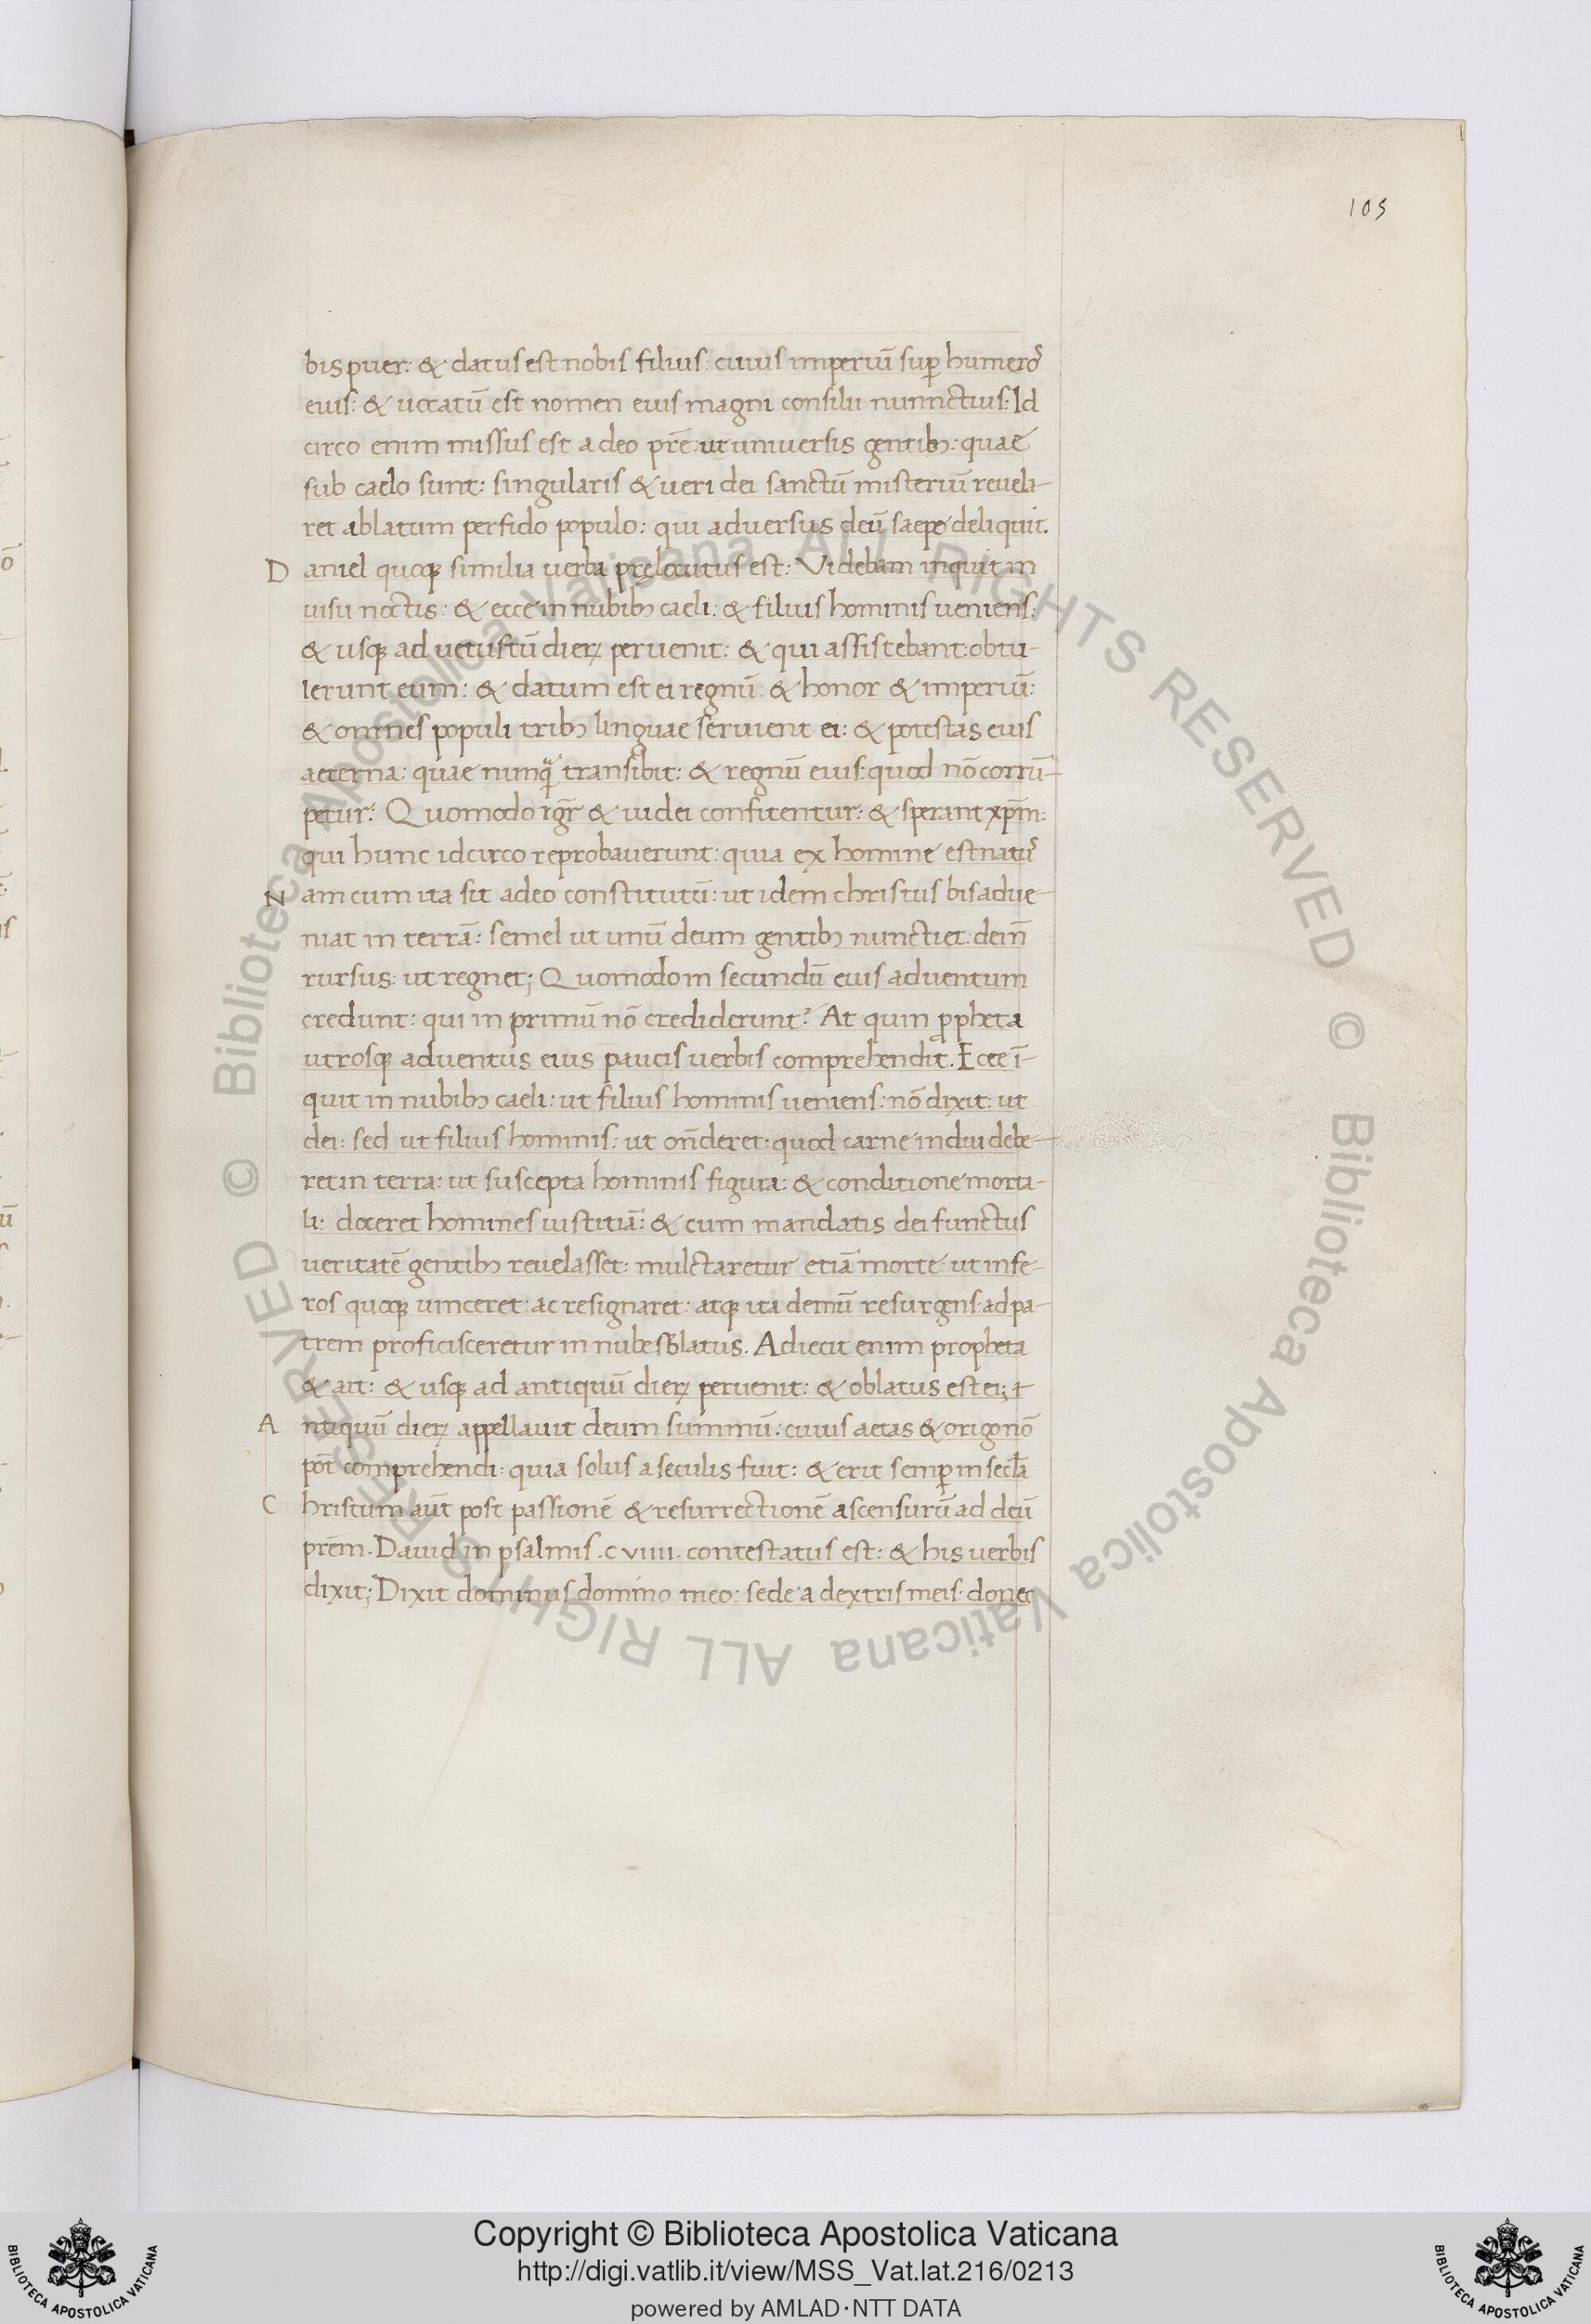 105
bis puer: & datus est nobis filius: cuius imperiū sup̱ humerꝰ
eius: & uocatū est nomen eius magni consilii nunnctius: Id
circo enim missus est a deo prē: ut uniuersis gentibꝫ: quae
sub caelo sunt: singularis & ueri dei sanctū misteriū reuela-
ret ablatum perfido populo: qui aduersus deū saepe deliquit.
Daniel quoqꝫ similia uerba prelocutus est: Videbam inquit in
uisu noctis: & ecce in nubibꝫ caeli: & filius hominis ueniens:
& usqꝫ ad uetustū dieꝝ peruenit: & qui assistebant: obtu-
lerunt eum: & datum est ei regnū: & honor & imperiū:
& omnes populi tribꝫ linguae seruient ei: & potestas eius
aeterna: quae nunqͣ transibit: & regnū eius: quod nō corrū-
petur: Quomodo igr̄ & iudei confitentur: & sperant xp̄m:
qui hunc idcirco reprobauerunt: quia ex homine est natꝰ
Nam cum ita sit adeo constitutū: ut idem christus bis adue-
niat in terrā: semel ut unū deum gentibꝫ nunctiet: dein̄
rursus: ut regnet; Quomodo in secundū eius aduentum
credunt: qui in primū nō crediderunt? At quin ꝓpheta
utrosqꝫ aduentus eius paucis uerbis comprehendit. Ecce ī-
quit in nubibꝫ caeli: ut filius hominis ueniens: nō dixit: ut
dei: sed ut filius hominis: ut on̄deret: quod carne indui debe-
ret in terra: ut suscepta hominis figura: & conditione morta-
li: doceret homines iustitiā: & cum mandatis dei functus
ueritatē gentibꝫ reuelasset: mulctaretur etiā morte: ut infe-
ros quoqꝫ uinceret: ac resignaret: atqꝫ ita demū resurgens: ad pa-
trem proficisceretur in nube sublatus. Adiecit enim propheta
& ait: & usqꝫ ad antiquū dieꝝ peruenit: & oblatus est ei;
Antiquū dieꝝ appellauit deum summū: cuius aetas & origo nō
pōt comprehendi: quia solus a seculis fuit: & erit semp̱ in secl̄a
Christum aūt post passionē & resurrectionē ascensurū ad deū
prēm. Dauid in psalmis .cviiii. contestatus est: & his uerbis
dixit; Dixit dominus domino meo: sede a dextris meis: donec
© Biblioteca Apostolica Vaticana ALL RIGHTS RESERVED © Biblioteca Apostolica Vaticana ALL RIGHTS RESERVED
Copyright © Biblioteca Apostolica Vaticana
http://digi.vatlib.it/view/MSS_Vat.lat.216/0213
powered by AMLAD·NTT DATA
BIBLIOTECA APOSTOLICA VATICANA
BIBLIOTECA APOSTOLICA VATICANA